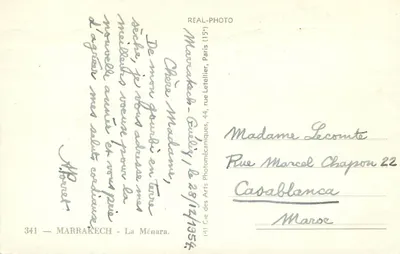 REAL-PHOTO
Marrakech-Guéliz, le 28/12/1954.
Chère Madame,
De mon gourbi en terre
sèche, je vous adresse mes
meilleurs voeux pour la
nouvelle année et vous prie
d'agréer mes saluts cordiaux
A. Porret
des Arts Photomécaniques, 44, rue Letellier, Paris (15e)
Madame Lecomte
Rue Marcel Chapon 22
Casablanca
Maroc
341 — MARRAKECH - La Ménara.